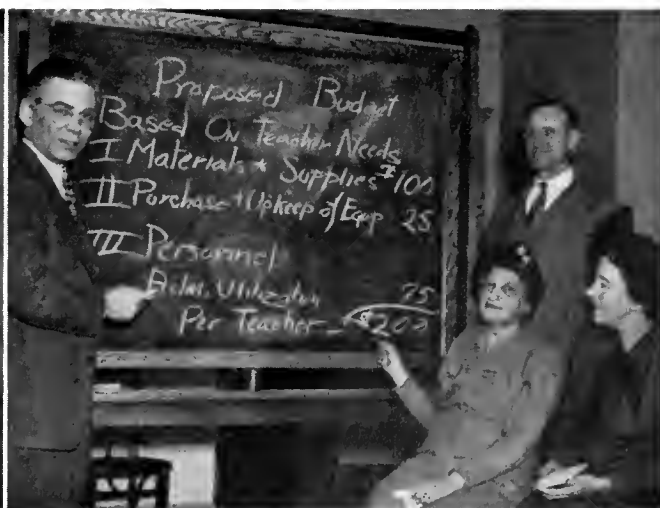 Proposed Budget
Based On Teacher Needs
I Materials + Supplies $100
II Purchase + Upkeep of Equip 25
III Personnel
Utilization 75
Per Teacher - $200